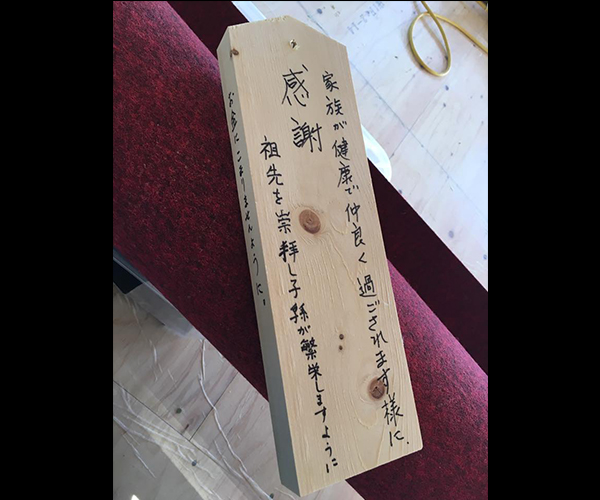 家族が健康で仲良く過ごされます様に.
感謝
祖先を崇拝し子孫が繁栄しますように
お金にこまりませんように.